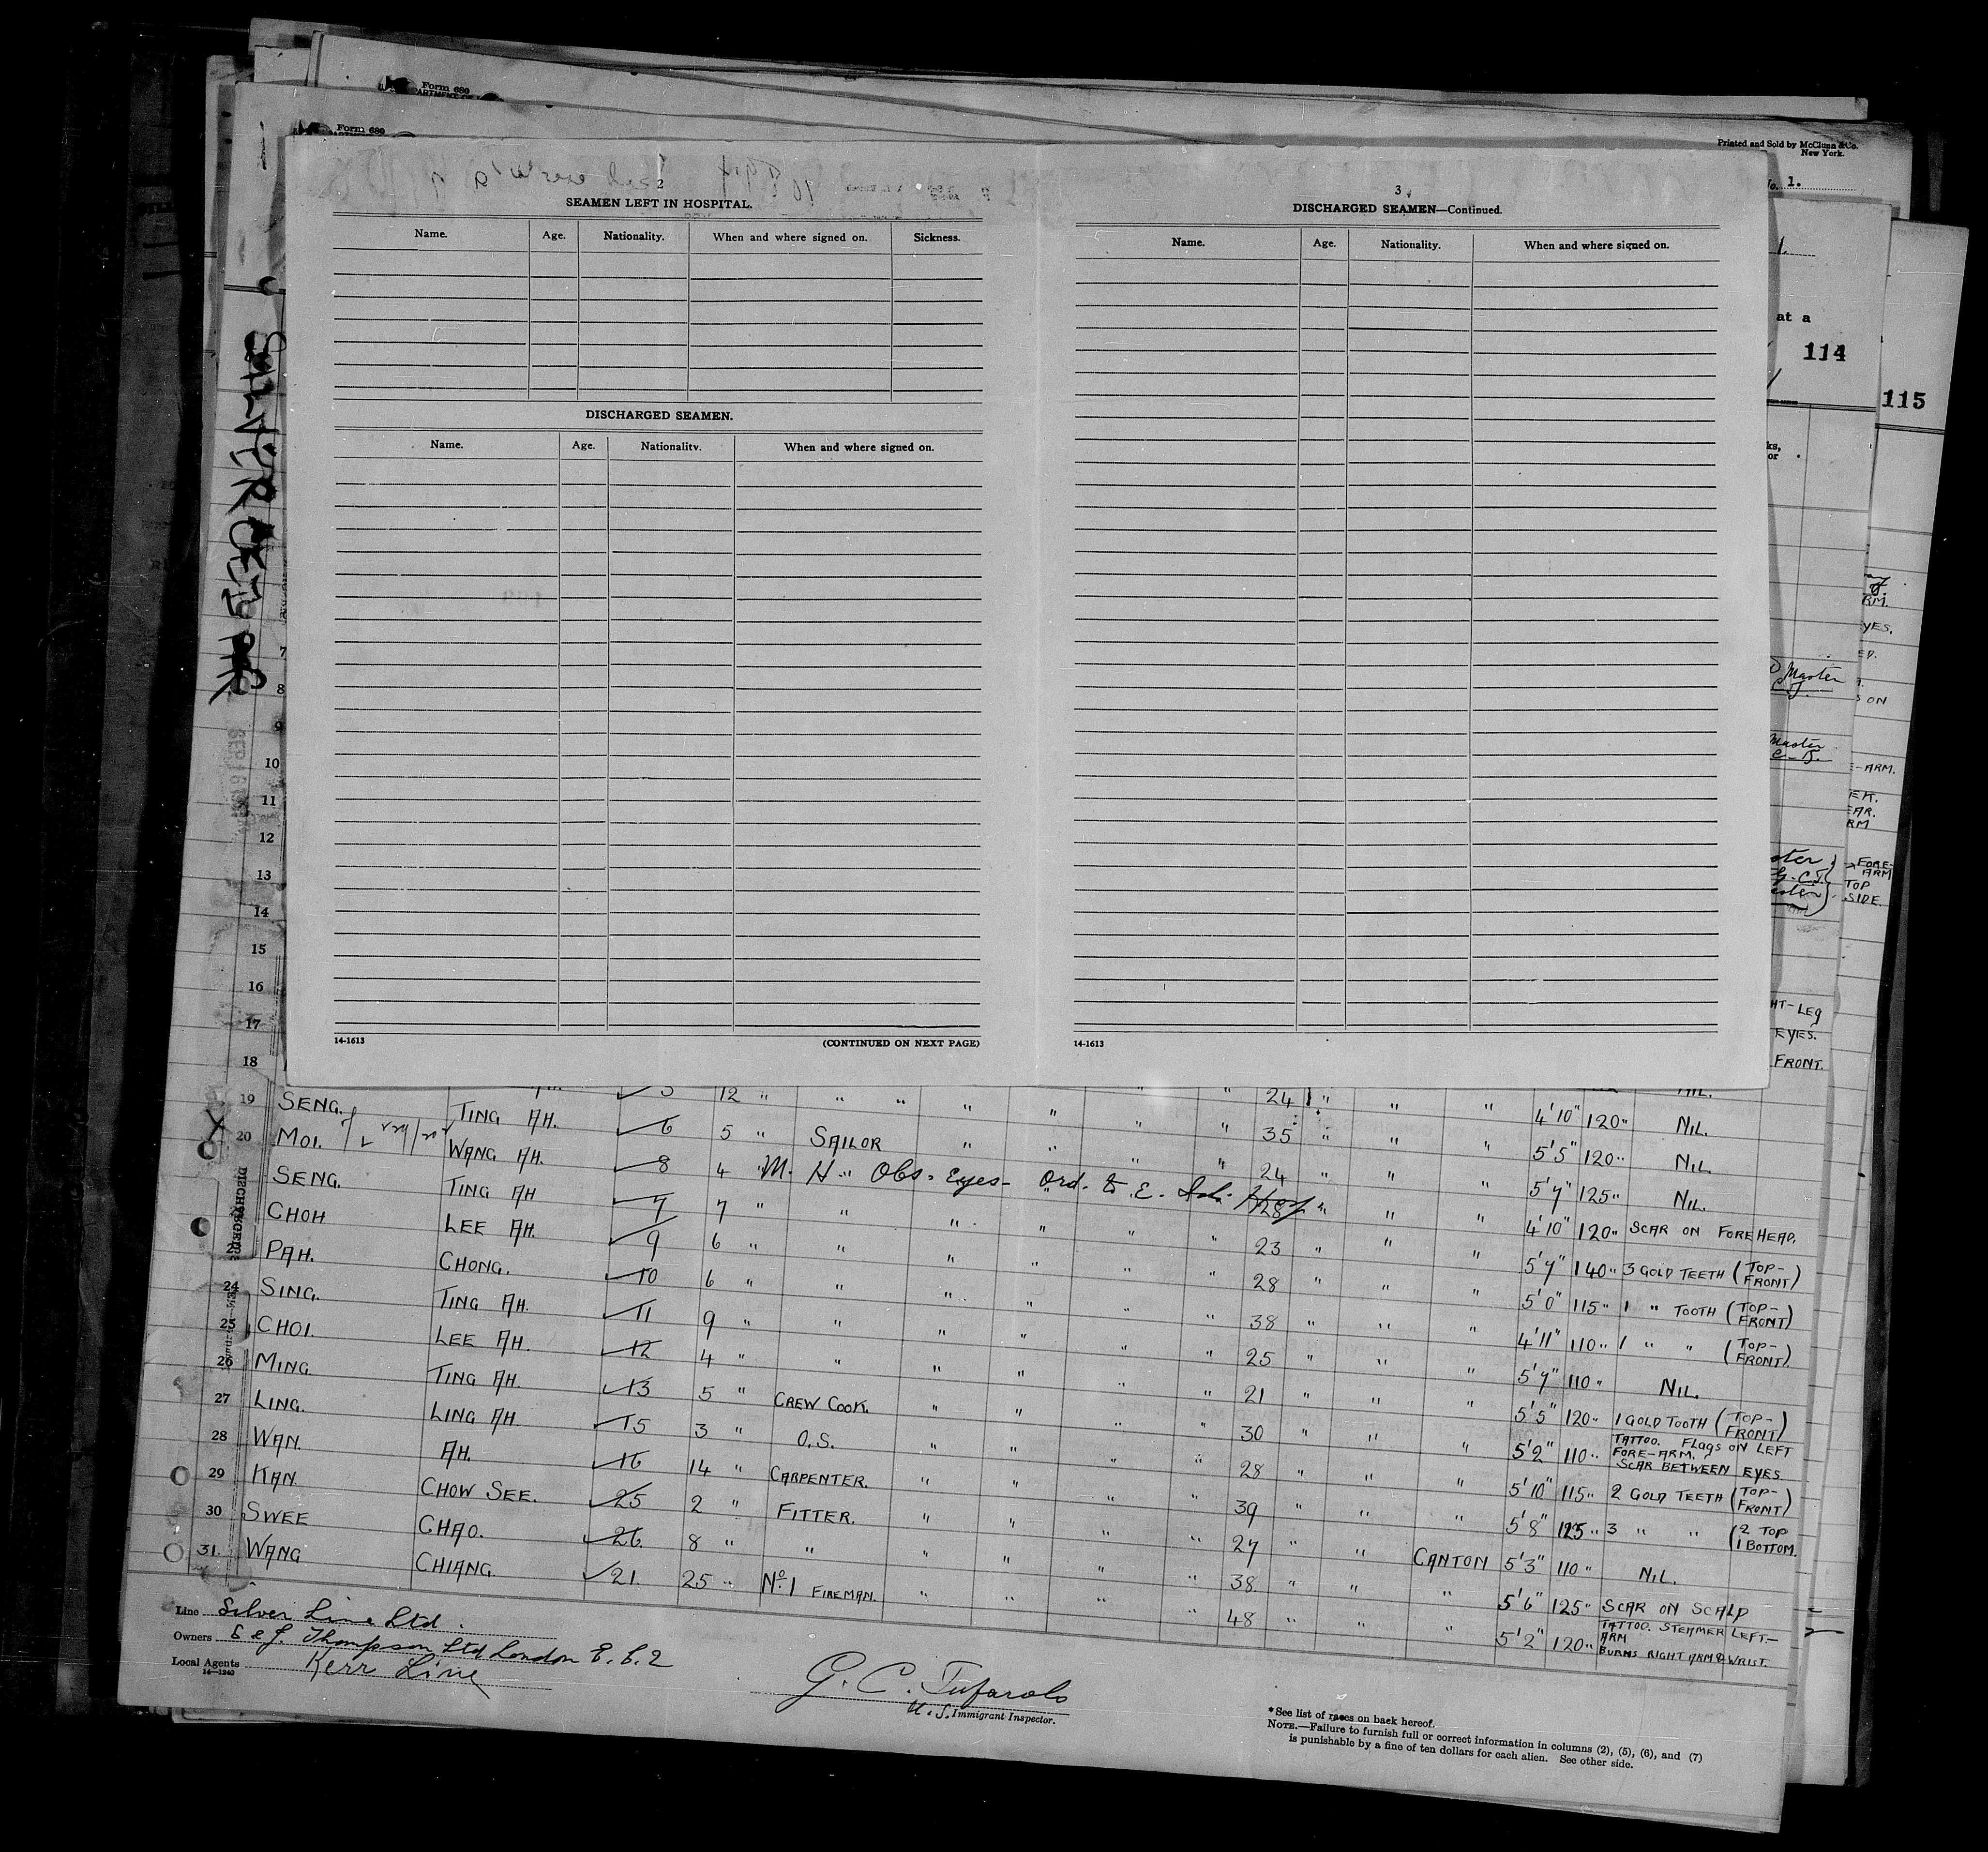 Form 680
Form 680
Printed and Sold by McClunn & Co.
New York.
No. 1.
1.
at a
114
115
SILVERCEDAR
2
SEAMEN LEFT IN HOSPITAL.
Name. Age. Nationality. When and where signed on. Sickness.
DISCHARGED SEAMEN.
Name. Age. Nationality. When and where signed on.
14-1613 (CONTINUED ON NEXT PAGE)
3
DISCHARGED SEAMEN—Continued.
Name. Age. Nationality. When and where signed on.
14-1613
ks,
or
RM.
YES,
ED.
Master
S ON
Master
E-ARM.
EK.
EAR.
RM
FORE-
ARM
TOP
SIDE.
HT-LEG
EYES.
FRONT.
7
8
9
10
11
12
13
14
15
16
17
18
19 SENG. TING AH. 5 12 " " " " " " 24 " " " 4'10" 120" NIL.
20 MOI. WANG AH. 6 5 " SAILOR " " " " 35 " " " 5'5" 120" NIL.
SENG. TING AH 8 4 " M. H. Obs. Eyes- Ord. to E. Isl. Hosp 24 " " " 5'7" 125" NIL.
CHOH LEE AH. 7 7 " " " " " " 28 " " " 4'10" 120" SCAR ON FOREHEAD.
PAH. CHONG. 9 6 " " " " " " 23 " " " 5'7" 140" 3 GOLD TEETH (TOP-FRONT)
24 SING. TING AH. 10 6 " " " " " " 28 " " " 5'0" 115" 1 " TOOTH (TOP-FRONT)
25 CHOI. LEE AH. 11 9 " " " " " " 38 " " " 4'11" 110" 1 " " (TOP-FRONT).
26 MING. TING AH. 12 4 " " " " " " 25 " " " 5'7" 110" NIL.
27 LING. LING AH. 13 5 " CREW COOK. " " " " 21 " " " 5'5" 120" 1 GOLD TOOTH (TOP-FRONT)
28 WAN. AH. 15 3 " O.S. " " " " 30 " " " 5'2" 110" TATTOO. FLAGS ON LEFT FORE-ARM. SCAR BETWEEN EYES
29 KAN. CHOW SEE. 16 14 " CARPENTER. " " " " 28 " " " 5'10" 115" 2 GOLD TEETH (TOP-FRONT)
30 SWEE CHAO. 25 2 " FITTER. " " " " 39 " " " 5'8" 125" 3 " " (2 TOP 1 BOTTOM.
31. WANG CHIANG. 26. 8 " " " " " " 27 " " CANTON 5'3" 110" NIL.
21. 25 " No. 1 FIREMAN. " " " " 38 " " " 5'6" 125" SCAR ON SCALP
48 " " " 5'2" 120" TATTOO. STEAMER LEFT-ARM BURNS RIGHT ARM & WRIST.
Line Silver Line Ltd.
Owners S & J. Thompson Ltd London E.C.2
Local Agents Kerr Line
14—1240
G. C. Tufarolo
U. S. Immigrant Inspector.
*See list of races on back hereof.
NOTE.—Failure to furnish full or correct information in columns (2), (5), (6), and (7)
is punishable by a fine of ten dollars for each alien. See other side.